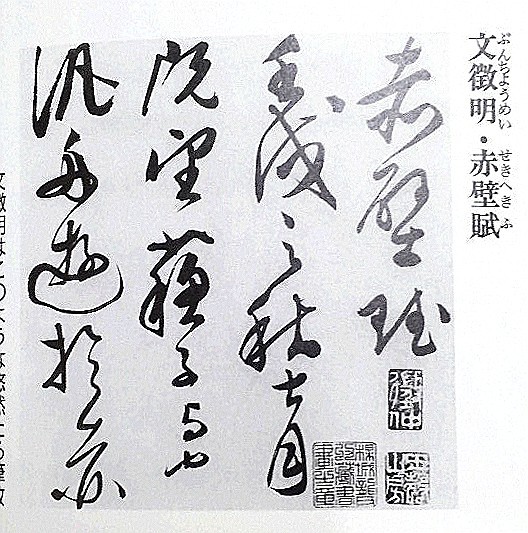 文徴明・赤壁賦
ぶんちようめい せきへきふ
赤壁賦
壬戌之秋七月
既望蘇子与客
汎舟遊於赤
文徴明はこのような悠然たる筆致